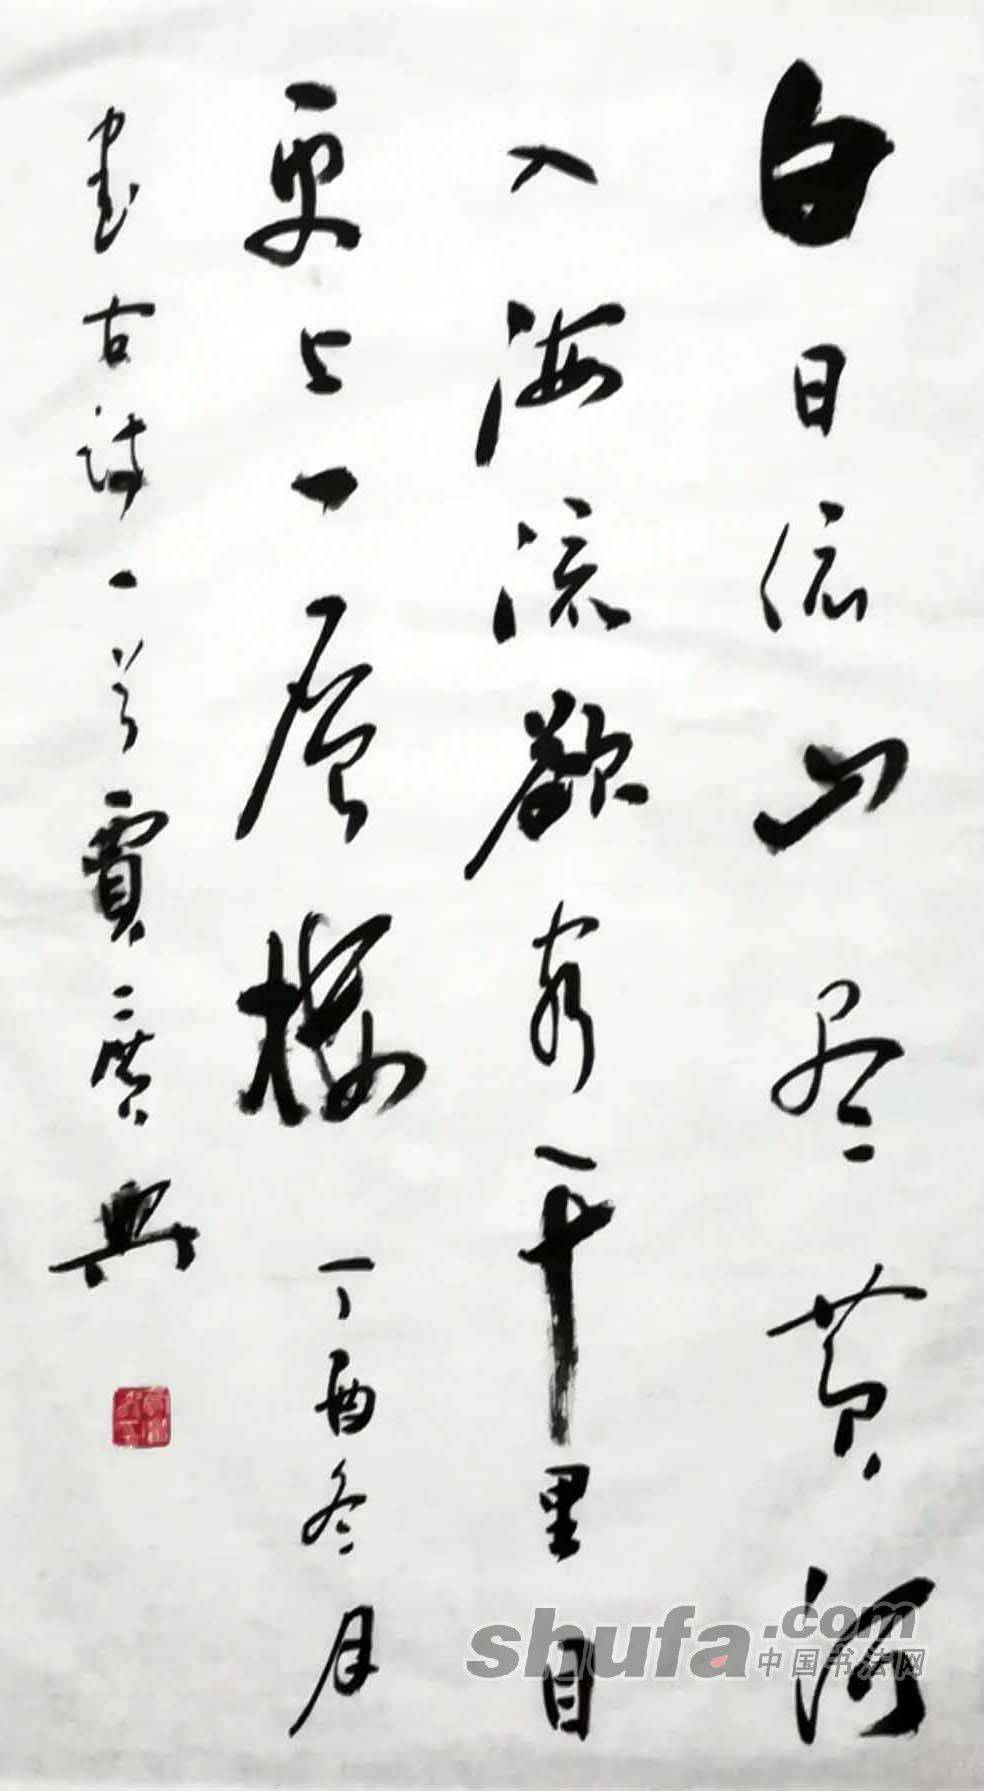 白日依山尽黄河
入海流欲穷千里目
更上一层楼 丁酉冬月
书古诗一首贾广兴
shufa.com
中国书法网